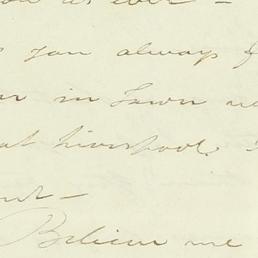 as ever -
you always
in Town
at Liverpool.
Believe me